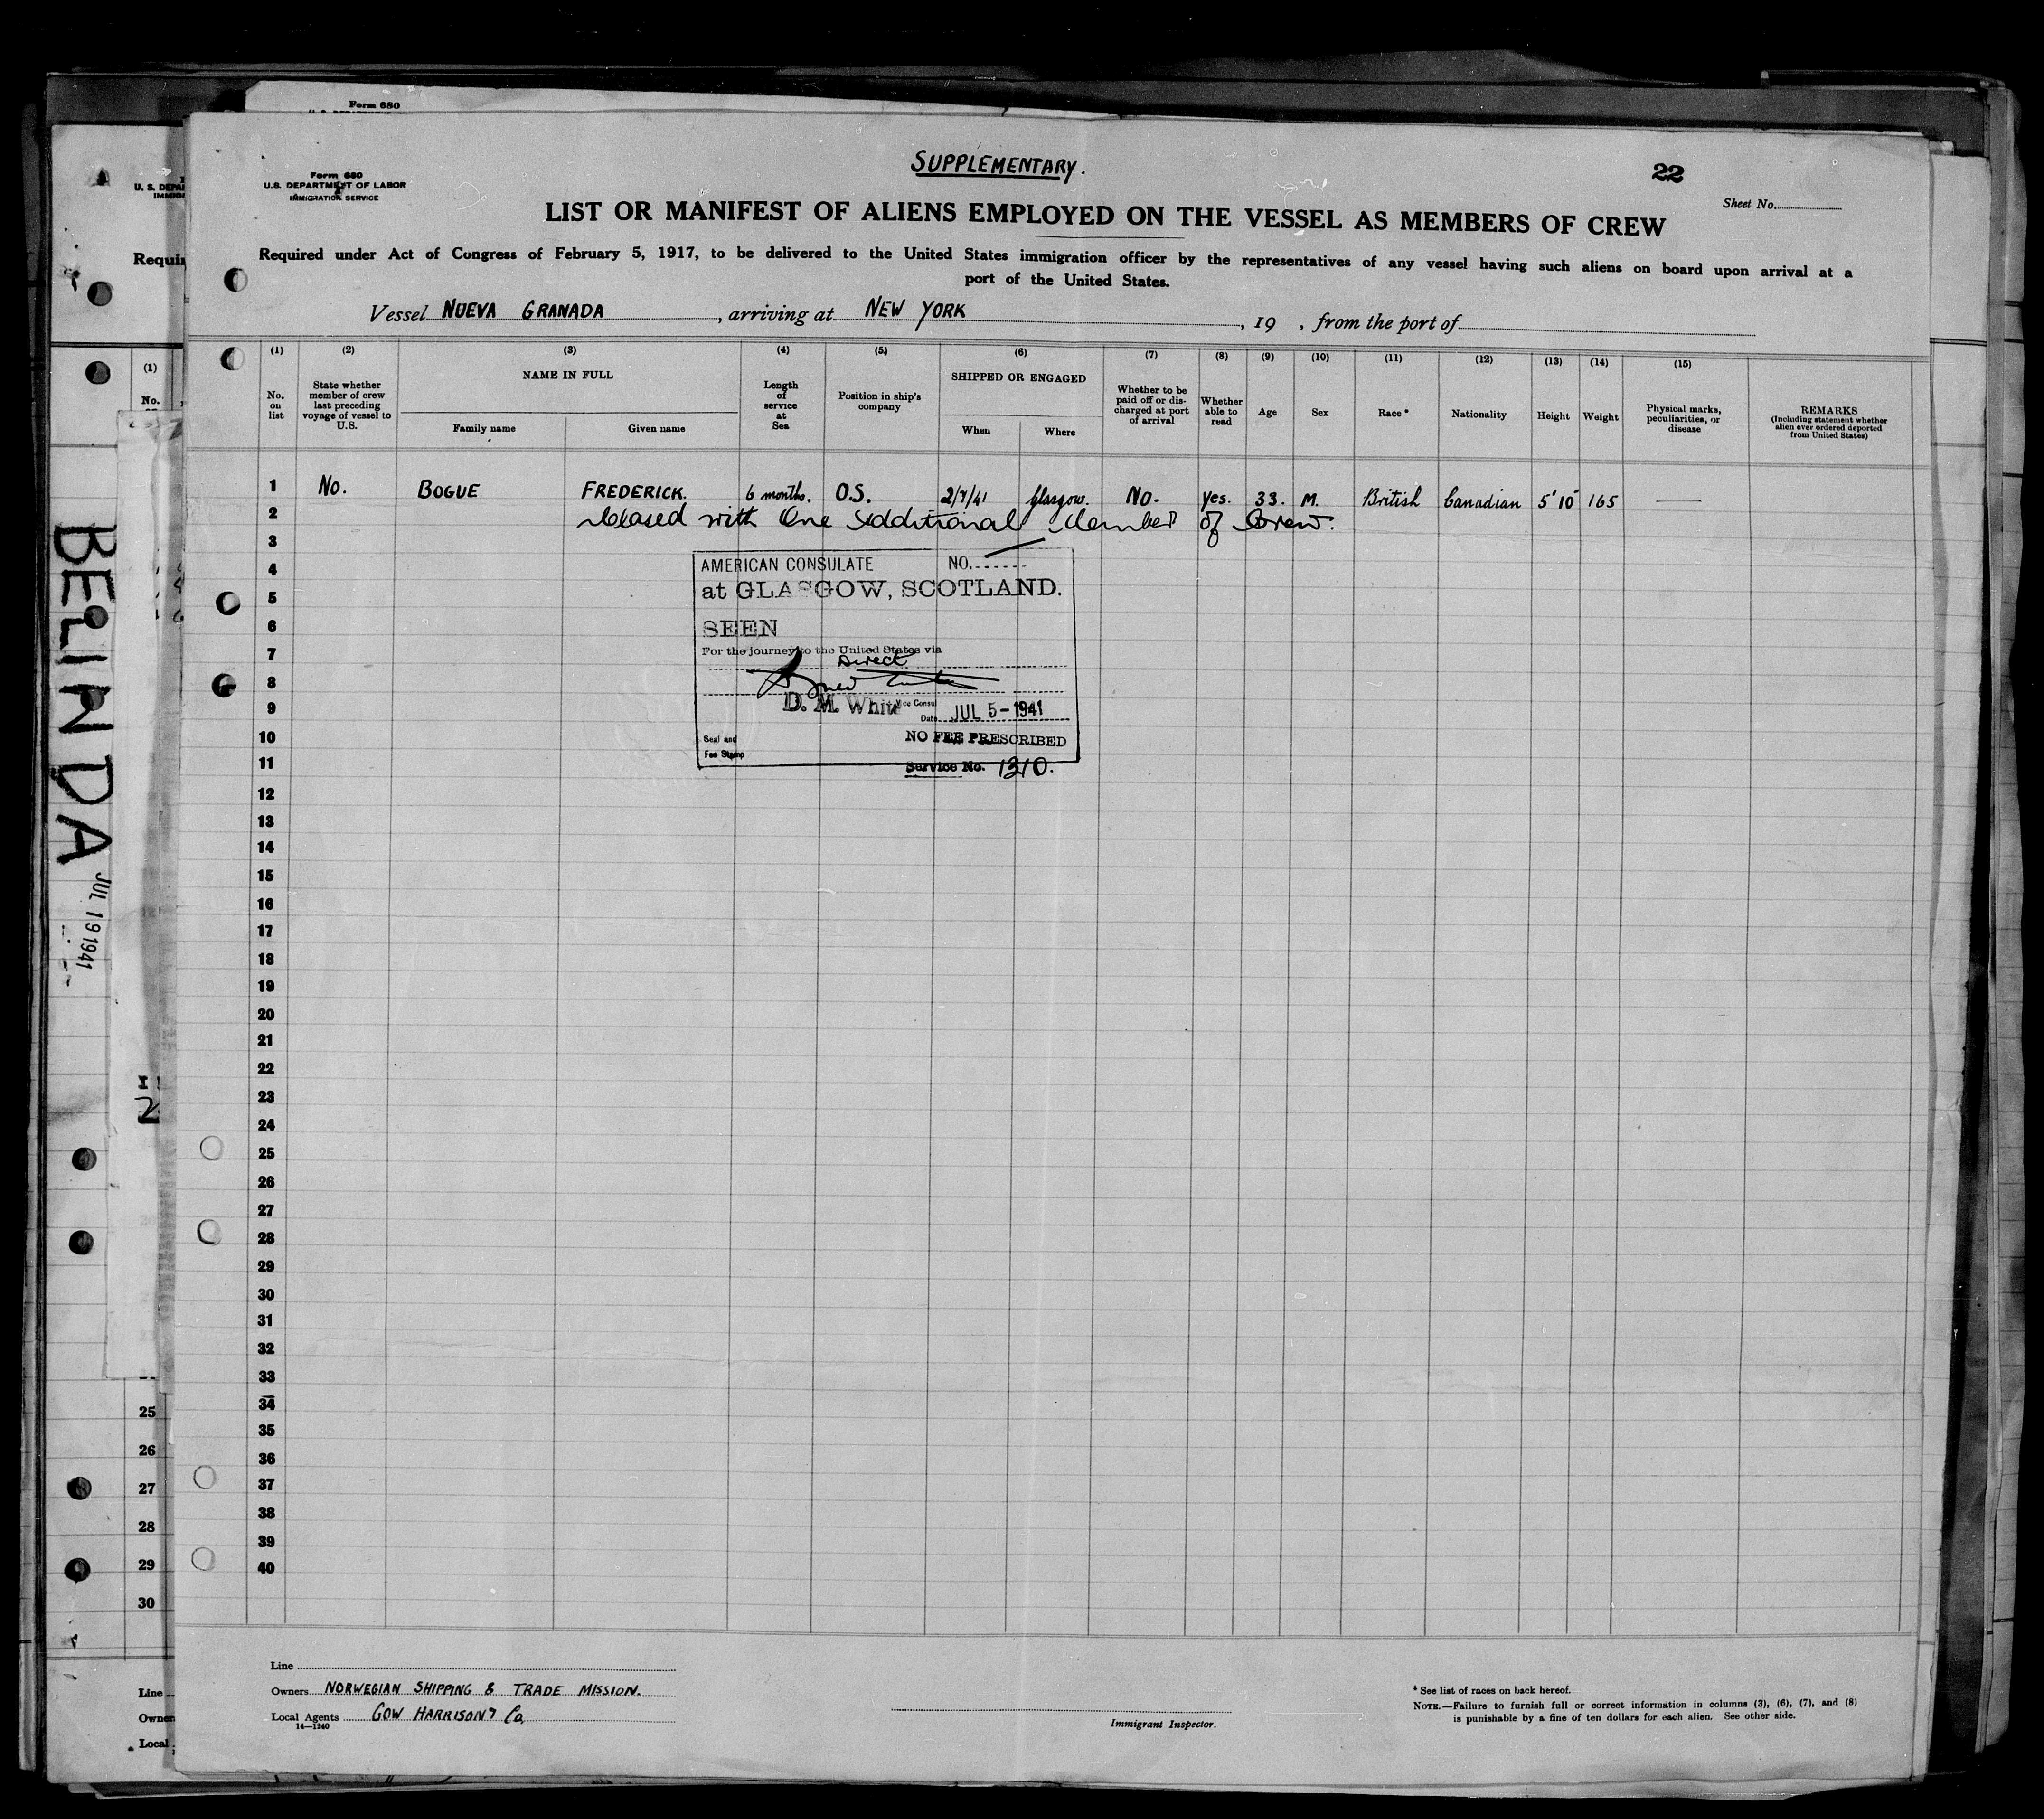 Form 680
U. S. DEPA
IMMIG
Requir
(1)
No.
BELINDA
JUL 19 1941
25
26
27
28
29
30
Line
Owner
Local
SUPPLEMENTARY.
22
Form 680
U.S. DEPARTMENT OF LABOR
IMMIGRATION SERVICE
Sheet No.
LIST OR MANIFEST OF ALIENS EMPLOYED ON THE VESSEL AS MEMBERS OF CREW
Required under Act of Congress of February 5, 1917, to be delivered to the United States immigration officer by the representatives of any vessel having such aliens on board upon arrival at a
port of the United States.
Vessel NUEVA GRANADA, arriving at NEW YORK, 19 , from the port of
(1) (2) (3) (4) (5) (6) (7) (8) (9) (10) (11) (12) (13) (14) (15)
No. on list
State whether member of crew last preceding voyage of vessel to U.S.
NAME IN FULL
Family name
Given name
Length of service at Sea
Position in ship's company
SHIPPED OR ENGAGED
When
Where
Whether to be paid off or discharged at port of arrival
Whether able to read
Age
Sex
Race *
Nationality
Height
Weight
Physical marks, peculiarities, or disease
REMARKS
(Including statement whether alien ever ordered deported from United States)
1 No. BOGUE FREDERICK. 6 months. O.S. 2/7/41 Glasgow. No. yes. 33. M. British Canadian 5' 10" 165 —
2 with One Additional Member of Crew.
3
4
5
6
7
8
9
10
11
12
13
14
15
16
17
18
19
20
21
22
23
24
25
26
27
28
29
30
31
32
33
34
35
36
37
38
39
40
AMERICAN CONSULATE NO.
at GLASGOW, SCOTLAND.
SEEN
For the journey to the United States via
Direct
D. M. White Vice Consul
Date JUL 5 - 1941
Seal and
Fee Stamp
NO FEE PRESCRIBED
Service No. 1310.
Line
Owners NORWEGIAN SHIPPING & TRADE MISSION.
Local Agents GOW HARRISON & Co.
14—1240
Immigrant Inspector.
* See list of races on back hereof.
NOTE.—Failure to furnish full or correct information in columns (3), (6), (7), and (8)
is punishable by a fine of ten dollars for each alien. See other side.